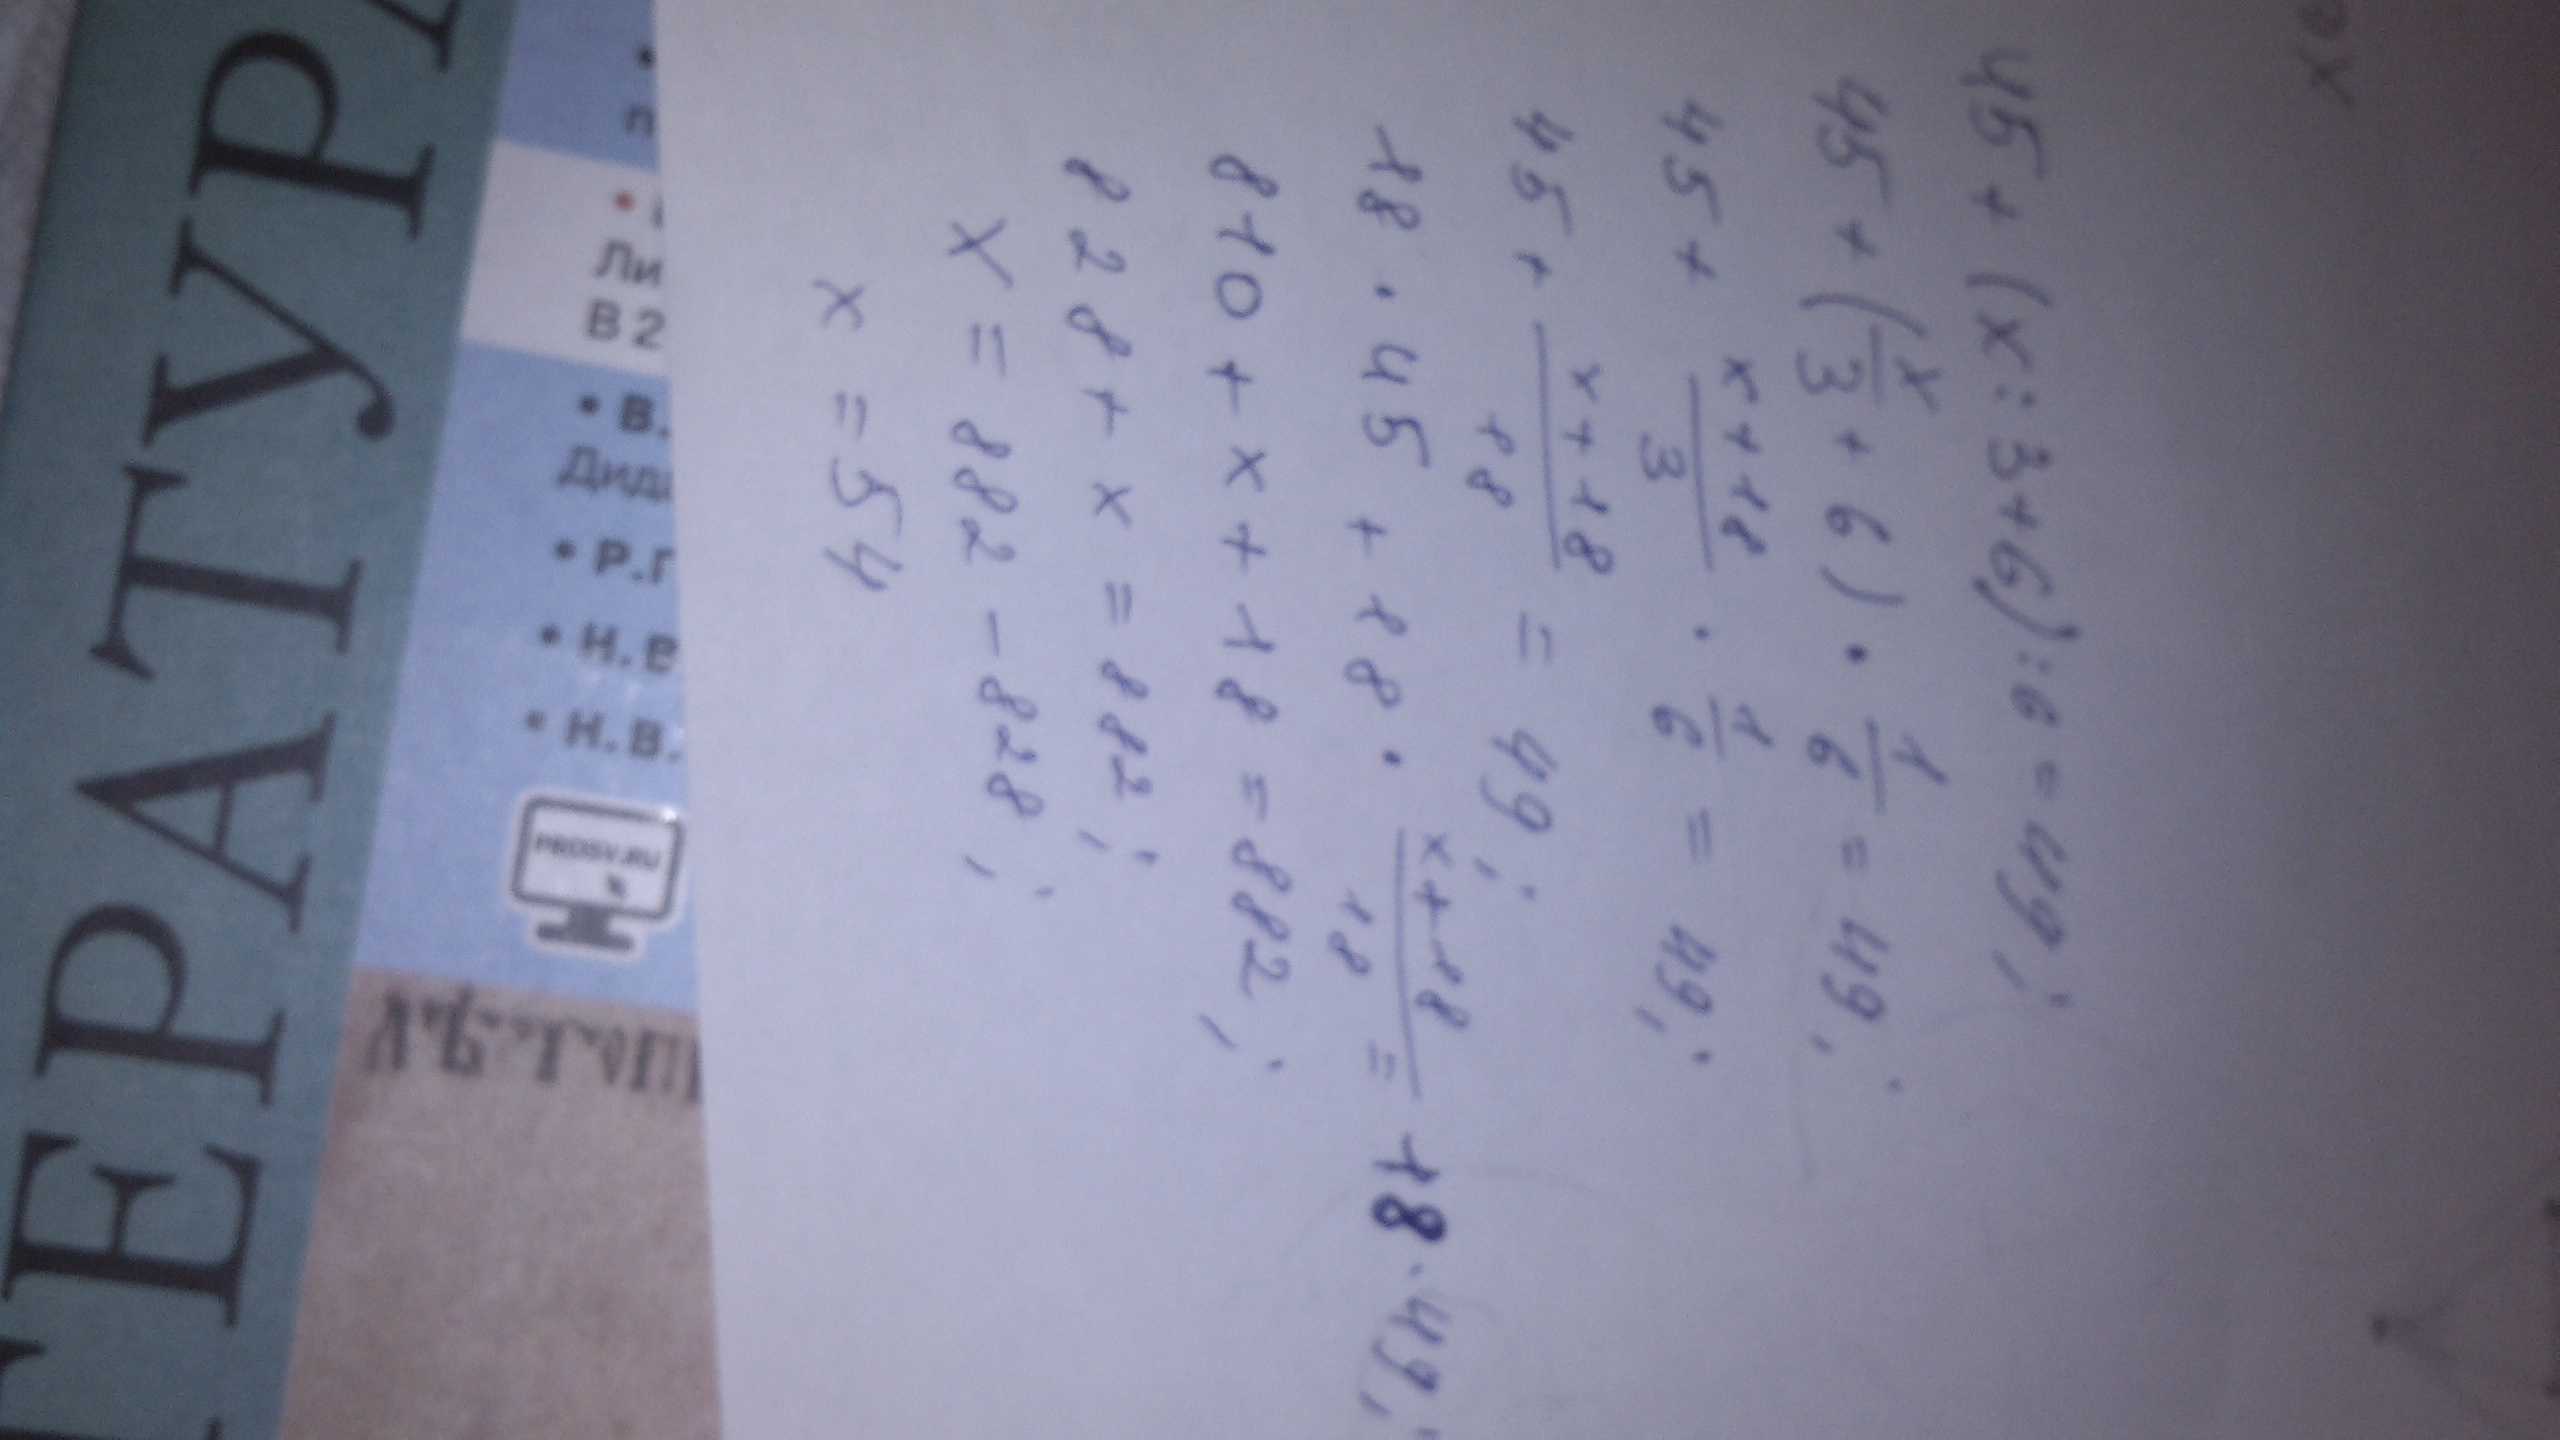 45 + (x : 3 + 6) : 6 = 49;
45 + (x/3 + 6) · 1/6 = 49;
45 + x+18/3 · 1/6 = 49;
45 + x+18/18 = 49;
18 · 45 + 18 · x+18/18 = 18 · 49;
810 + x + 18 = 882;
828 + x = 882;
x = 882 - 828;
x = 54
Ли
В 2
• В.
• Р.Г
• Н. В
• Н. В.
PROSV.RU